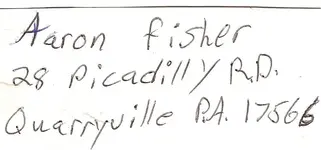 Aaron fisher
28 Picadilly R.D.
Quarryville P.A. 17566